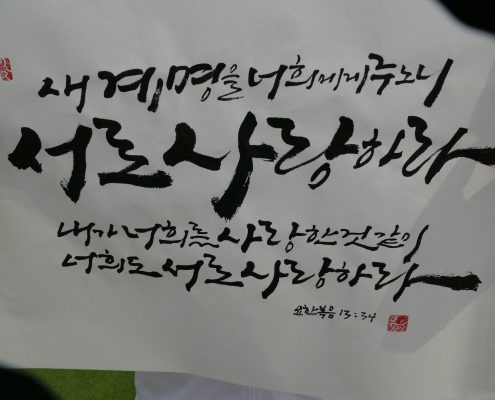 새 계명을 너희에게 주노니
서로 사랑하라
내가 너희를 사랑한 것 같이
너희도 서로 사랑하라
요한복음 13:34